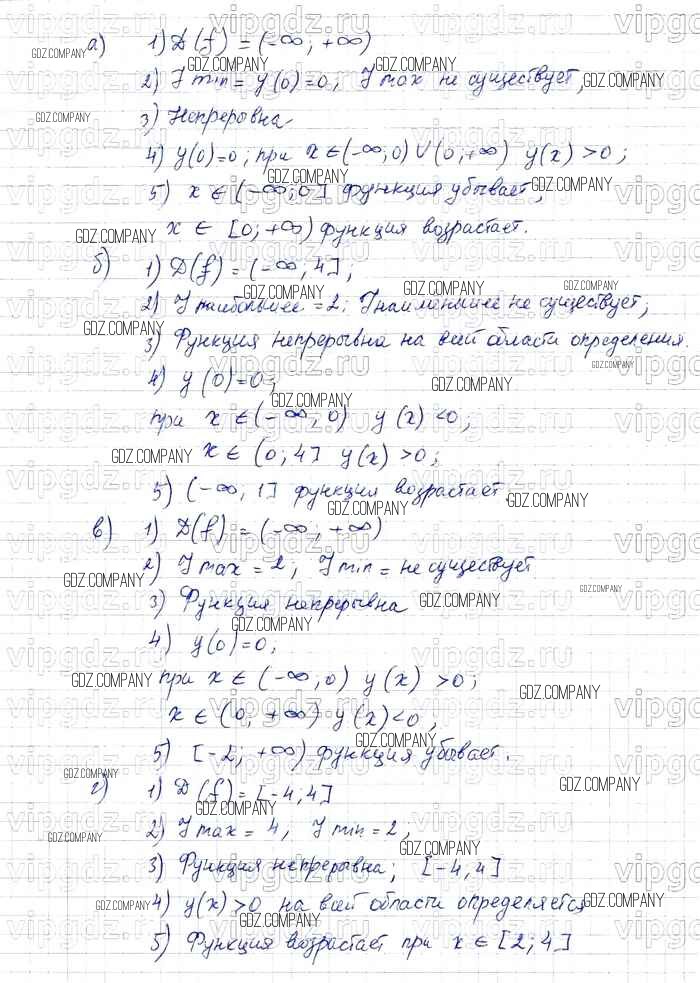 а) 1) D(f) = (-∞; +∞)
2) Y min = y(0) = 0; Y max не существует;
3) Непрерывна
4) y(0)=0; при x∈(-∞;0) ∪ (0;+∞) y(x) >0;
5) x ∈ (-∞;0] функция убывает;
x ∈ [0; +∞) функция возрастает.
б) 1) D(f) = (-∞, 4];
2) Y наибольшее = 2; Y наименьшее не существует;
3) Функция непрерывна на всей области определения.
4) y (0)=0;
при x ∈(-∞, 0) y (x) <0;
x ∈ (0; 4] y(x) >0;
5) (-∞, 1] функция возрастает.
в) 1) D(f) = (-∞; +∞)
2) Y max = 2, Y min = не существует
3) Функция непрерывна
4) y(0)=0;
при x ∈ (-∞,0) y(x) >0;
x ∈ (0, +∞) y(x)<0,
5) [-2; +∞) функция убывает.
г) 1) D(f)=[-4,4]
2) Y max = 4, Y min = 2,
3) Функция непрерывна; [-4,4]
4) y(x)>0 на всей области определяется
5) Функция возрастает при x ∈ [2; 4]